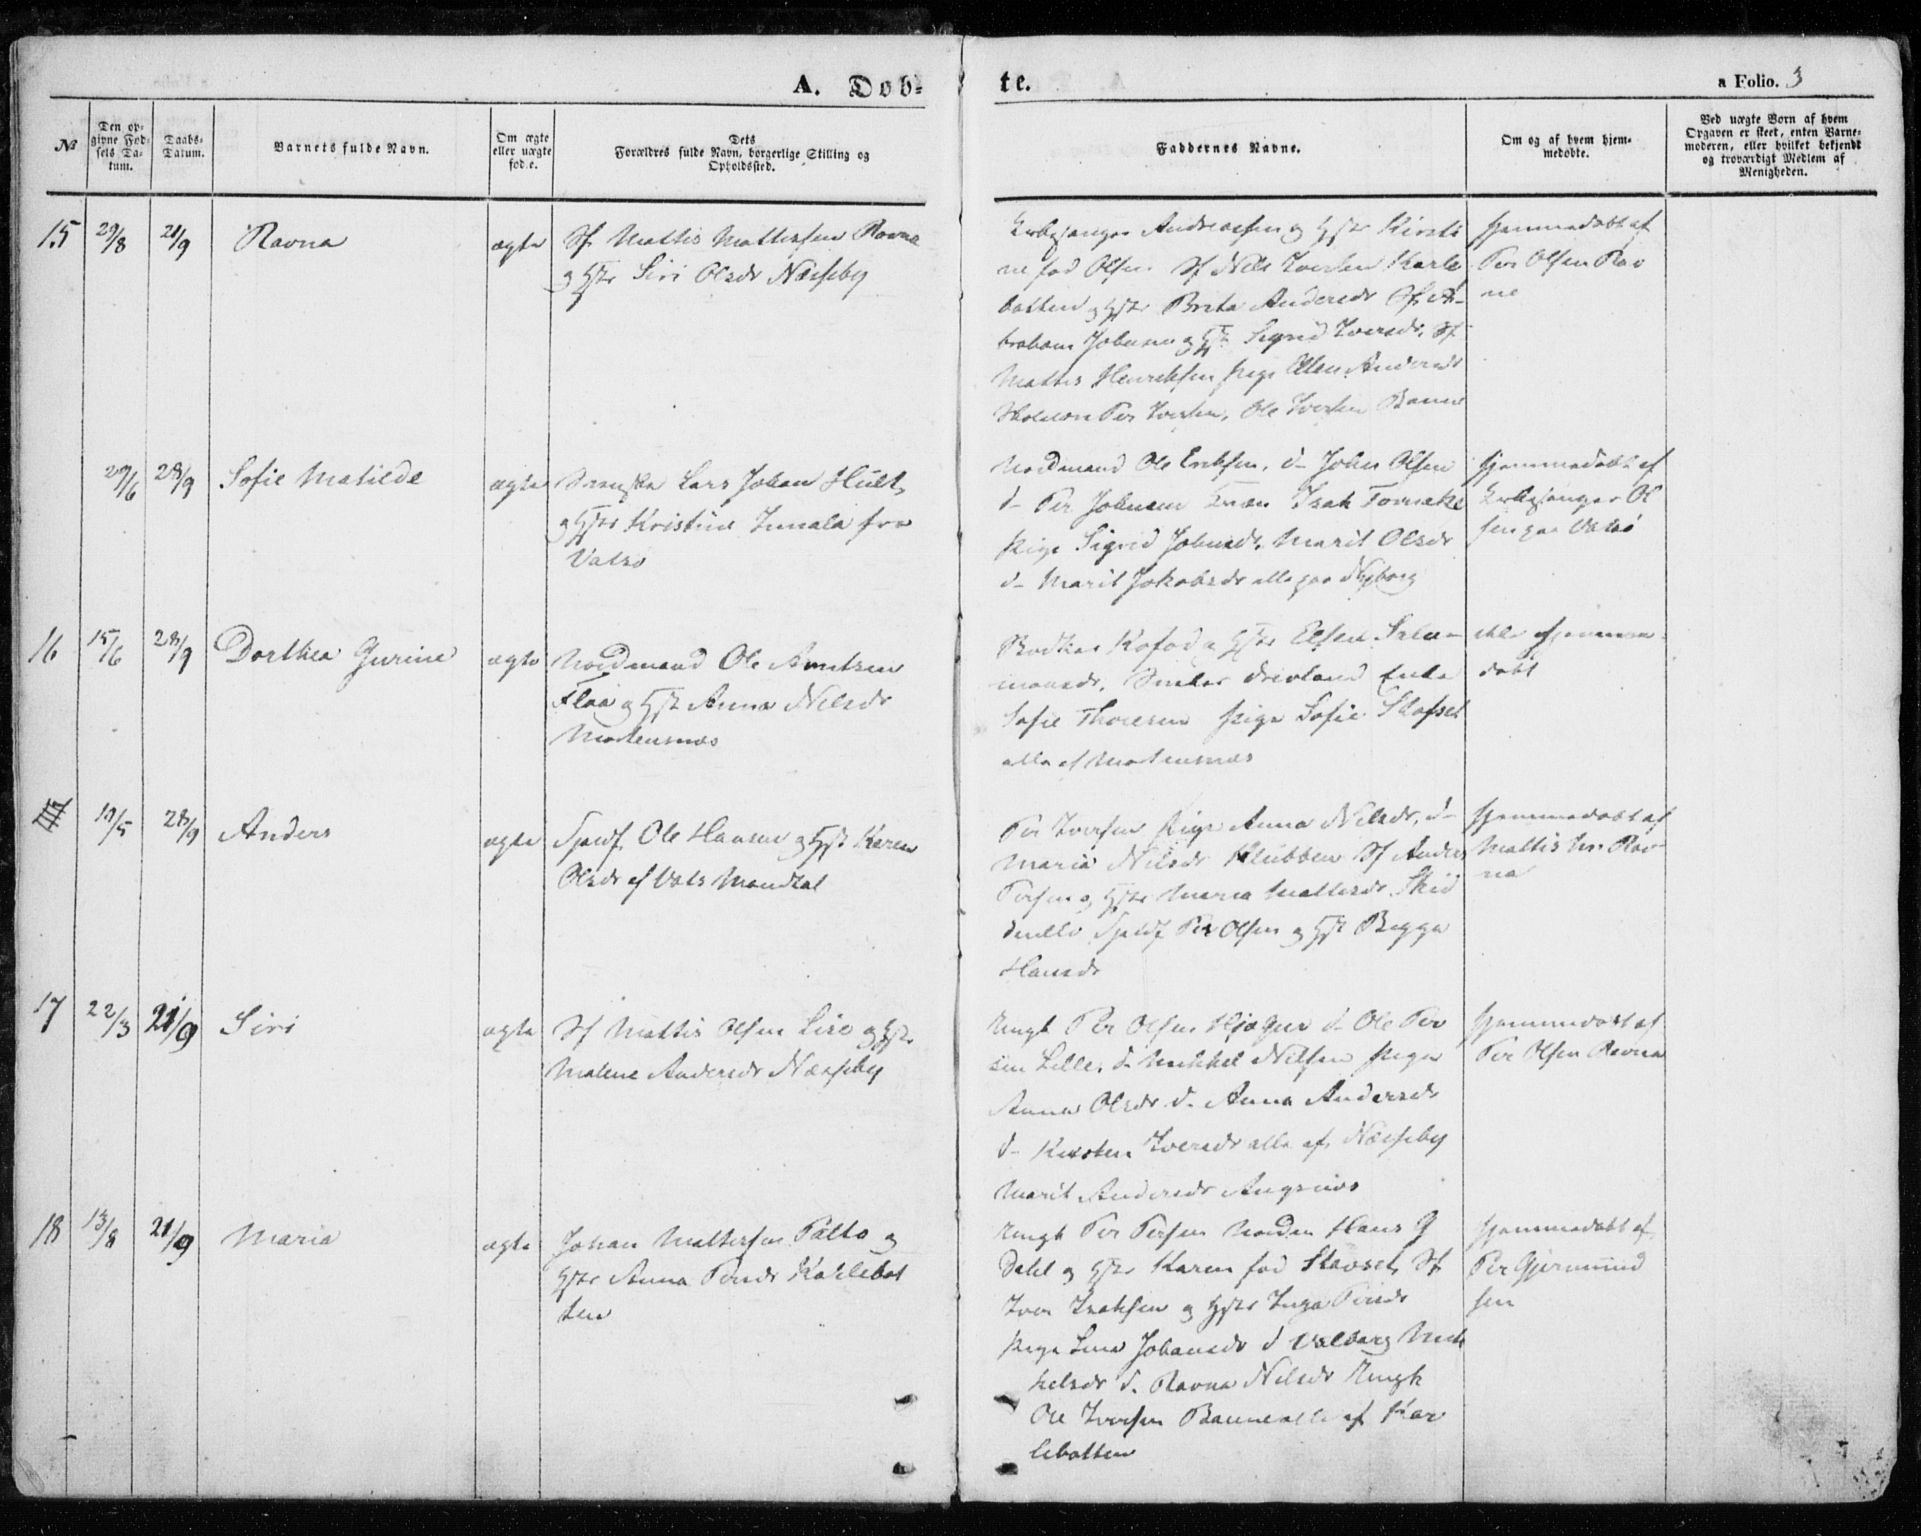 A. Døb-
te.
a Folio. 3
№
Den op-
givne Fød-
sels Da-
tum.
Daabs-
Datum.
Barnets fulde Navn.
Om ægte
eller uægte
fød.e.
Dets
Forældres fulde Navn, borgerlige Stilling og
Opholdssted.
Faddernes Navne.
Om og af hvem hjem-
medøbte.
Ved uægte Børn af hvem
Opgaven er skeet, enten Barne-
moderen, eller hvilket bekjendt
og troværdigt Medlem af
Menigheden.
15
29/8
21/9
Ravna
ægte
Sf. Mattis Mattissen Ravna
og Hstr Siri Olsdr Næsseby
Kirkesanger Andreassen og Hstr Kirsti
ne fød Olsen Sf Nils Iversen Karle
botten og Hstr Brita Andersdr Sf. A-
braham Johnsen og Hst Sigrid Iversdr. Sf.
Mattis Henriksen Pige Ellen Andersdr
Per Iversen, Ole Iversen Banne
Hjemmedøbt af
Per Olsen Rav
na
29/6
28/9
Sofie Matilde
ægte
Svenske Lars Johan Hult,
og Hstr Kristine Innala fra
Vadsø
Nordmand Ole Eriksen, d- John Olsen
d- Per Johnsen Kvæn Isak
Pige Sigrid Johnsdr. Marit Olsdr
d- Marit Jakobsdr alle paa Nyborg
Hjemmedøbt af
Kirkesanger Ol
sen paa Vadsø
16
15/6
28/9
Dorthea Gurine
ægte
Nordmand Ole Arntsen
Flaa og Hst Anna Nilsdr
Mortensnæs
Bødker Kofod og Hstr Elsen Salo-
monsdr, Enke
Sofie Thoresen Pige Sofie Stafset
alle af Mortensnæs
ikke hjemme-
døbt
10/5
28/9
Anders
ægte
Fjeldf. Ole Hansen og Hst Karen
Olsdr af Utsk Mandtal
Per Iversen Pige Anna Nilsdr, d-
Maria Nilsdr Klubben Sf Anders
Persen og Hstr Maria Mattisdr Skid
Fjeldf Per Olsen og Hst Bigga
Hansdr
Hjemmedøbt af
Mattis M. Rav
na
17
22/3
21/9
Siri
ægte
Sf Mattis Olsen Siro og Hstr
Malene Andersdr Næsseby
Ungk Per Olsen d- Ole Per
sen Lille, d- Mikkel Nilsen Pige
Anna Olsdr d- Anna Andersdr
d- Kirsten Iversdr alle af Næsseby
Marit Andersdr Angsnæs
Hjemmedøbt af
Per Olsen Ravna
18
13/8
21/9
Maria
ægte
Johan Mattissen Palto og
Hstr Anna Persdr Karlebot
ten
Ungk Per Persen Nordm Hans G
Dahl og Hstr Karen fød Stavset, Sf
Iver Isaksen og Hstr Inga Persdr
Pige Lina Johansdr d- Valborg Mik
kelsdr d. Ravna Nilsdr Ungk
Ole Iversen Banne alle af Kar
lebotten
Hjemmedøbt af
Per Gjermund
sen